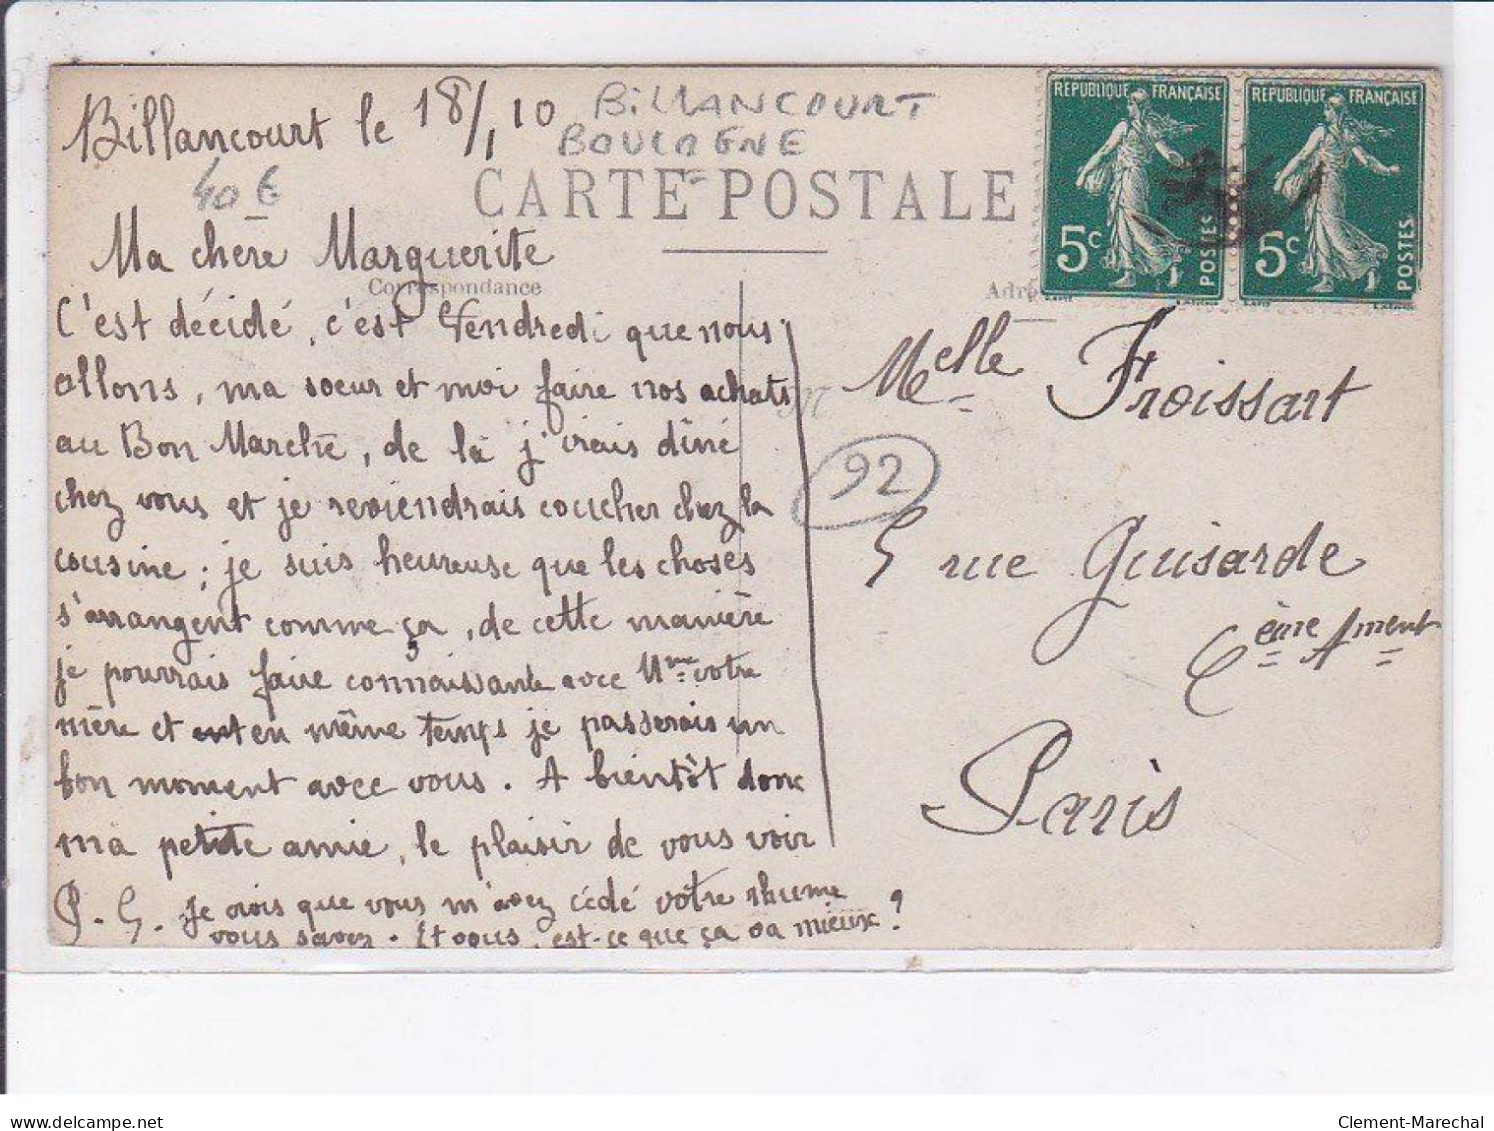 Billancourt le 18/1 10
BILLANCOURT
BOULOGNE
40 €
CARTE POSTALE
RÉPUBLIQUE FRANÇAISE
5c
POSTES
RÉPUBLIQUE FRANÇAISE
5c
POSTES
Ma chère Marguerite
Correspondance
C'est décidé, c'est Vendredi que nous
allons, ma soeur et moi faire nos achats
au Bon Marché, de là j'irais dîné
chez vous et je reviendrais coucher chez la
cousine ; je suis heureuse que les choses
s'arrangent comme ça, de cette manière
je pourrais faire connaissante avec Mme votre
mère et en même temps je passerais un
bon moment avec vous. A bientôt donc
ma petite amie, le plaisir de vous voir
P.S. Je crois que vous m'avez cédé votre rhume
vous savez. Et vous, est-ce que ça va mieux ?
Melle Froissart
92
5 rue Guisarde
6ème Arment
Paris
delcampe.net
Clement-Marechal